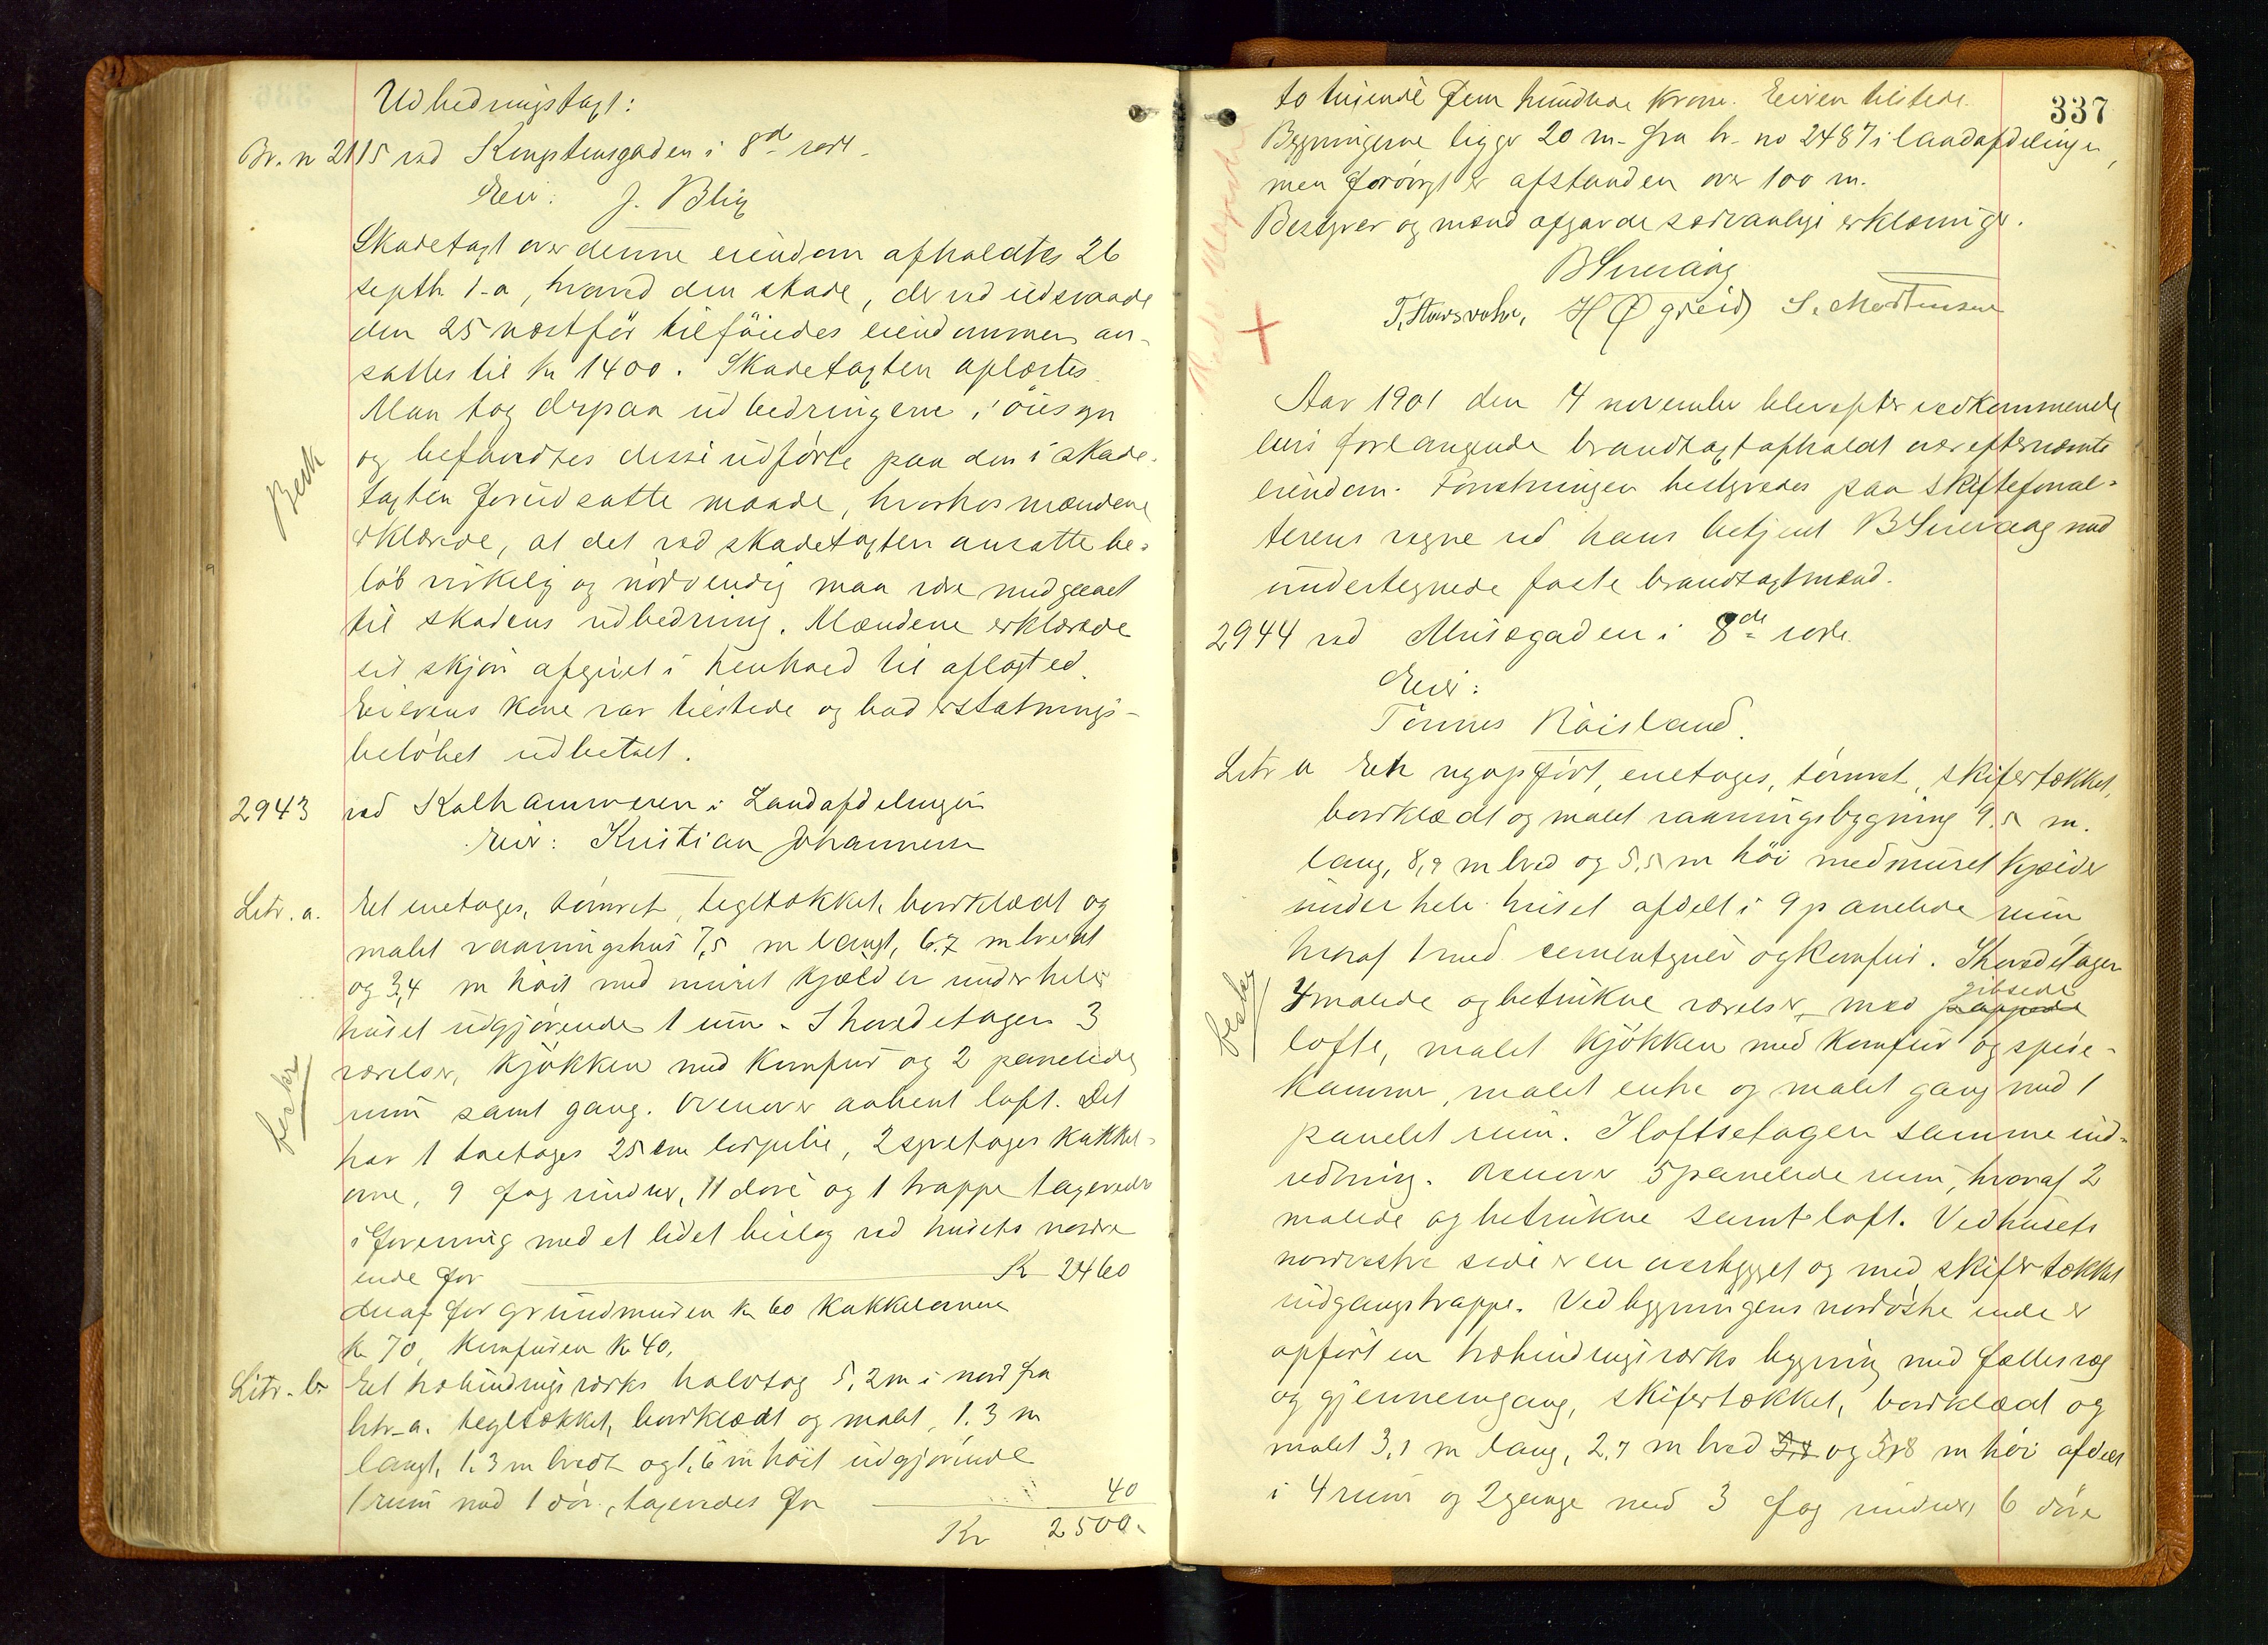 Udbedringstagt:
Br. n 2115 ved Kongstensgaden i 8de rode.
Eier: J. Blix
Skadetagt over denne eiendom afholdtes 26
septbr. l. a, hvorved den skade, der ved ildsvaade
den 25 næstför tilföiedes eiendommen an-
sattes til kr 1400. Skadetagten oplæstes.
Man tog derpaa udbedringerne i öiesyn
og befandtes disse udförte paa den i skade-
tagten forudsatte maade, hvorhos mændene
erklærede, at det ved skadetagten ansatte be-
löb virkelig og nödvendig maa være medgaaet
til skadens udbedring. Mændene erklærede
sit skjön afgivet i henhold til aflagt ed.
Eierens kone var tilstede og bad erstatnings-
belöbet udbetalt.
2943 ved Kalhammeren i Landafdelingen
Eier: Kristian Johannesen
Litr. a. Et enetages, tömret, tegltækket, bordklædt og
malet vaaningshus 7,5 m langt, 6.7 m bredt
og 3,4 m höit med muret kjælder under hele
huset udgjörende 1 rum. I hovedetagen 3
værelser, kjökken med komfur og 2 panelede
rum samt gang. Ovenover aabent loft. Det
har 1 toetages 25 cm borpibe, 2 syvetages kakkel-
ovne, 9 fag vinduer, 11 döre og 1 trappe tageredes
i forening med et lidet bislag ved husets nordre
ende for Kr 2460
deraf for grundmuren kr 60 kakkelovnene
kr 70, komfuren kr 40.
Litr. b Et træbindingsværks halvtag 5,2 m i nord fra
litr. a. tegltækket, bordklædt og malet, 1.3 m
langt, 1.3 m bredt og 1,6 m höit udgjörende
1 rum med 1 dör, tageredes for 40
Kr 2500.
337
to tusende fem hundrede kroner. Eieren tilstede.
Bygningerne ligger 20 m. fra br. no 2487 i landafdelingen,
men forövrigt er afstanden over 100 m.
Bestyrer og mænd afgav de sædvanlige erklæringer.
B Snevaag
H Øgreid S. Mortensen
Aar 1901 den 14 november blev efter vedkommende
eiers forlangende brandtagt afholdt over efternævnte
eiendom. Forretningen bestyredes paa skifteforval-
terens vegne ved hans betjent B Snevaag med
undertegnede faste brandtagtmænd.
2944 ved Musegaden i 8de rode.
Eier:
Tönnes Röisland.
Litr a En nyopfört, enetages, tömret, skifertækket,
bordklædt og malet vaaningsbygning 9.5 m.
lang, 8,9 m bred og 5,5 m höi med muret kjælder
under hele huset afdelt i 9 panelede rum,
hvoraf 1 med cementgulv og komfur. I hovedetagen
4 malede og betrukne værelser, med gibsede
lofte, malet kjökken med komfur og spise-
kammer, malet entre og malet gang med 1
panelet rum. I loftsetagen samme ind-
redning. Ovenover 5 panelede rum, hvoraf 2
malede og betrukne samt loft. Ved husets
nordvestre side er en overbygget og med skifer tækket
indgangstrappe. Ved bygningens nordöstre ende er
opfört en træbindingsværks bygning med fælles væg
og gjennemgang, skifertækket, bordklædt og
malet 3,1 m lang, 2,7 m bred og 5,8 m höi afdelt
i 4 rum og 2 gange med 3 fag vinduer, 6 döre